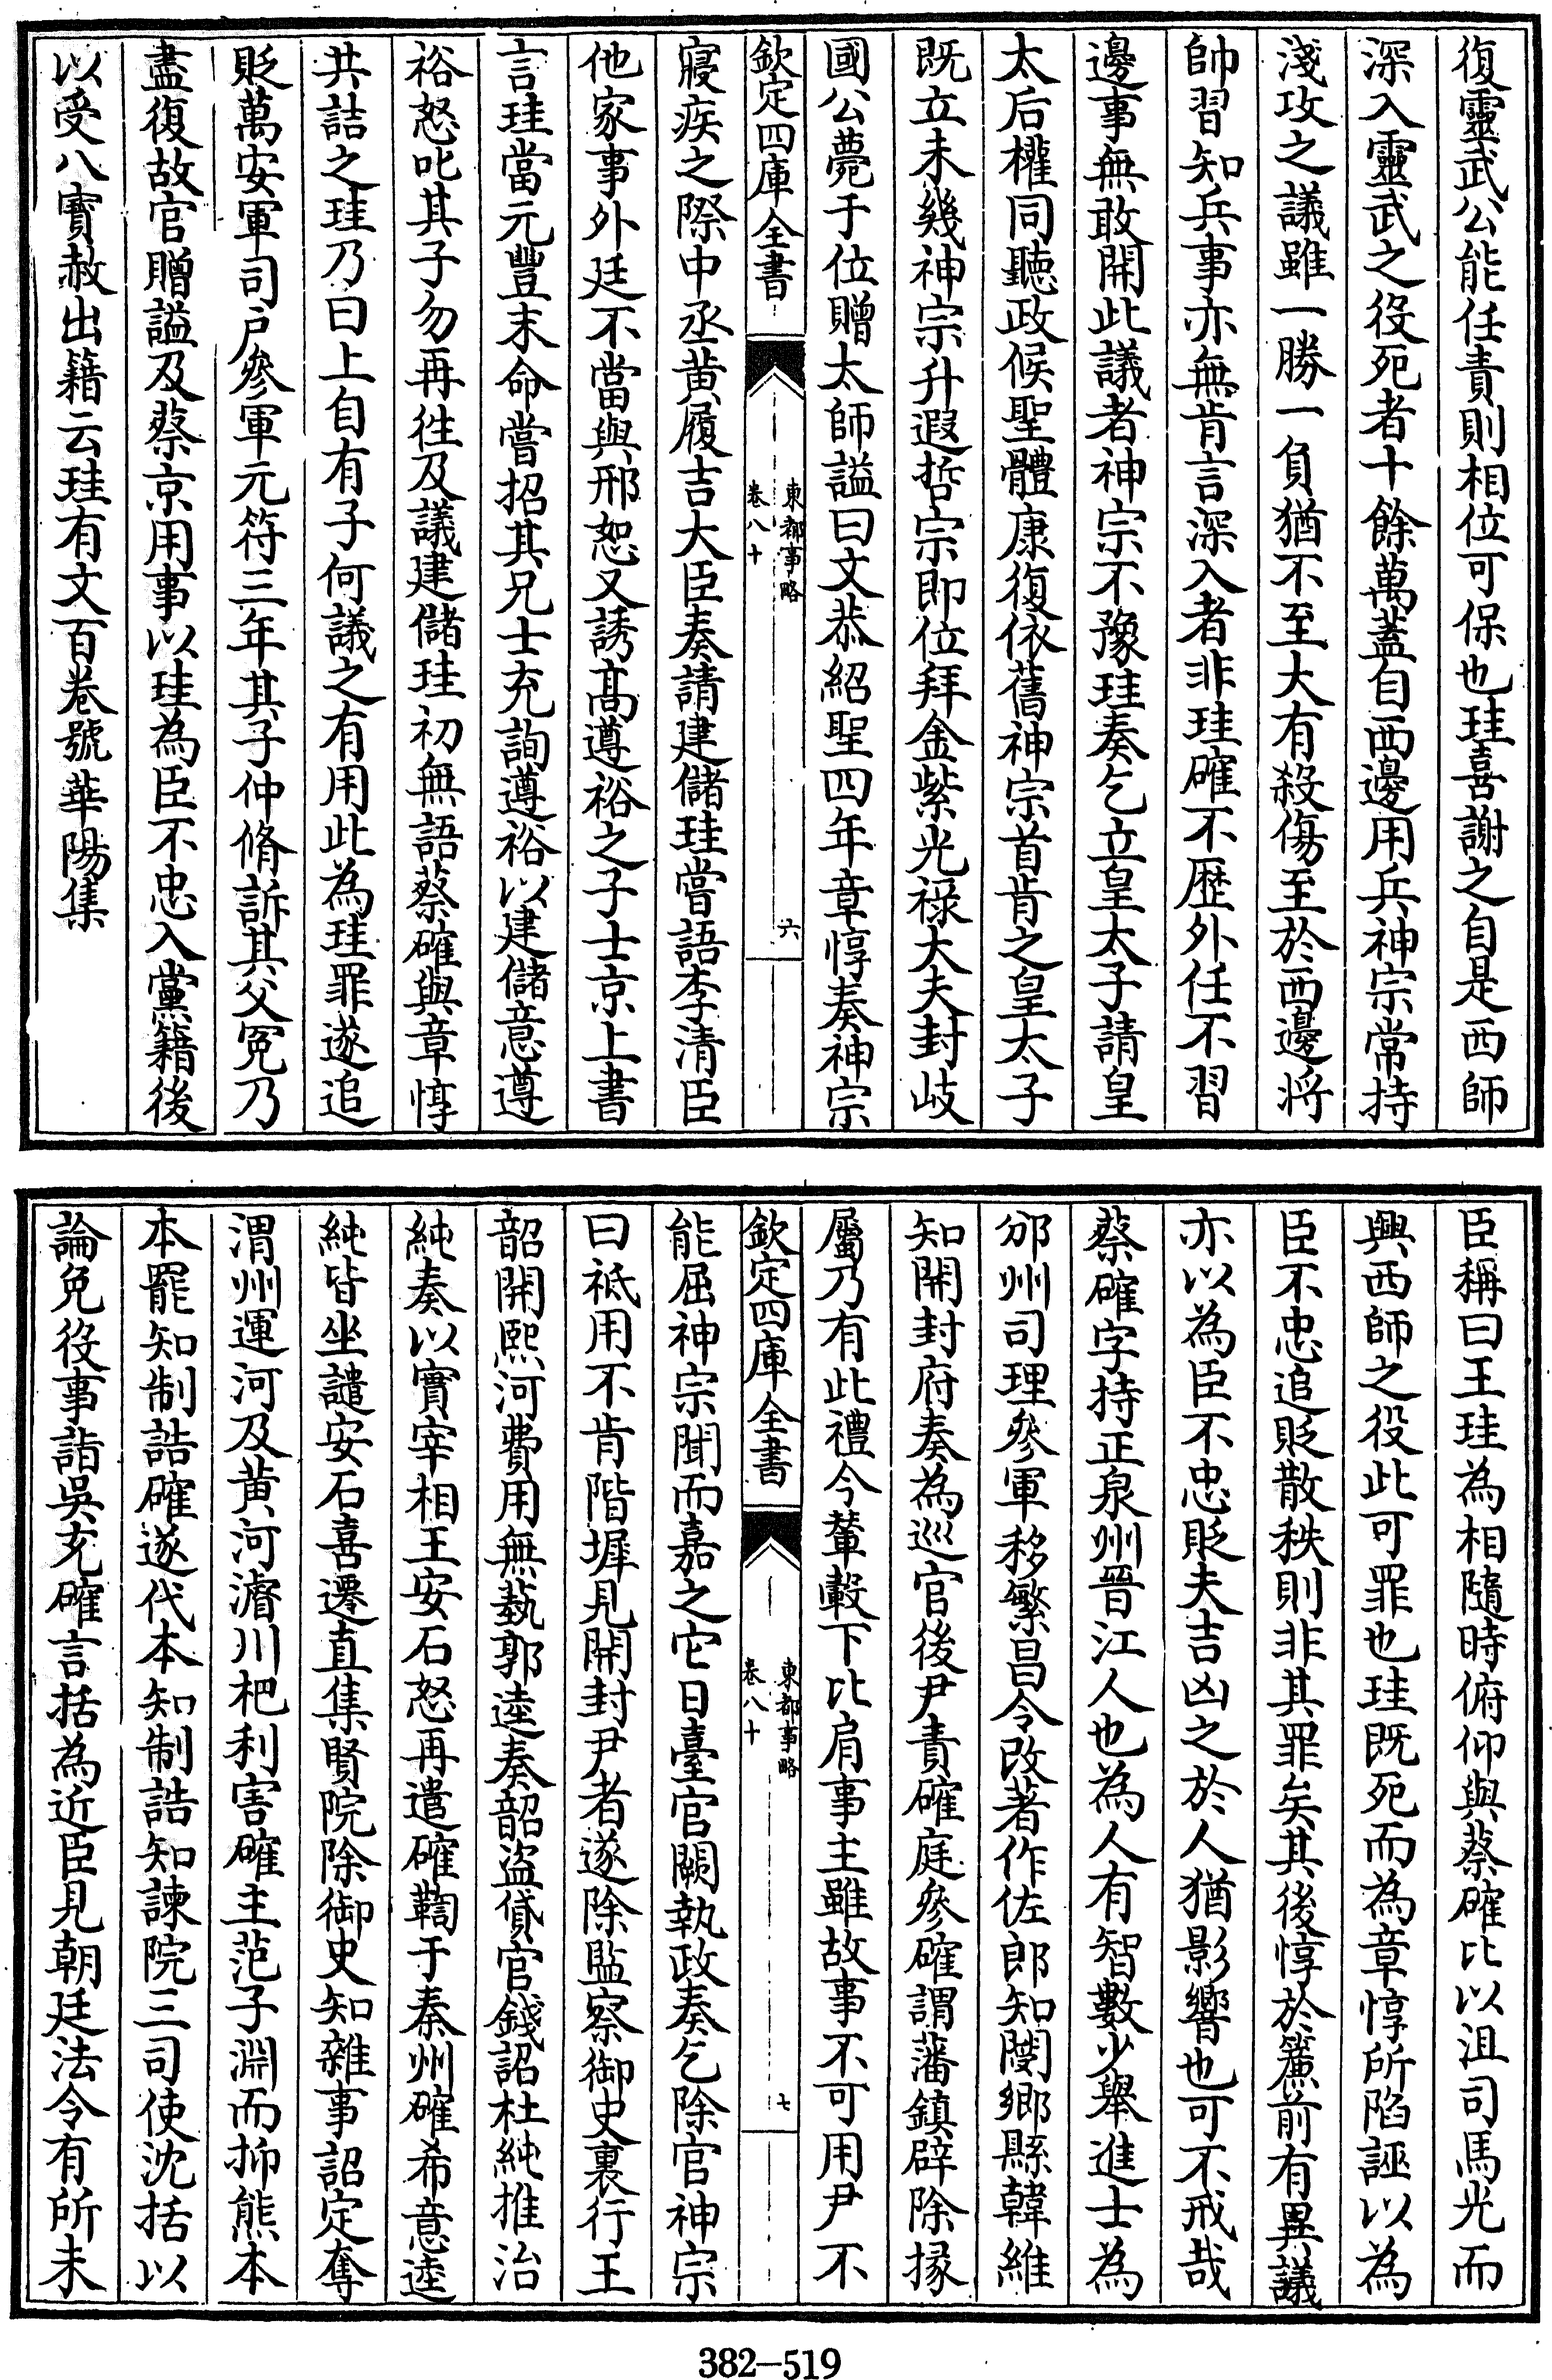 復靈武公能任責則相位可保也珪喜謝之自是西師
深入靈武之役死者十餘萬蓋自西邊用兵神宗常持
淺攻之議雖一勝一負猶不至大有殺傷至於西邊將
帥習知兵事亦無肯言深入者非珪確不歴外任不習
邊事無敢開此議者神宗不豫珪奏乞立皇太子請皇
太后權同聽政候聖體康復依舊神宗首肯之皇太子
既立未幾神宗升遐哲宗即位拜金紫光祿大夫封岐
國公薨于位贈太師諡曰文恭紹聖四年章惇奏神宗
欽定四庫全書
東都事略
卷八十
六
寢疾之際中丞黄履吉大臣奏請建儲珪嘗語李清臣
他家事外廷不當與邢恕又誘髙遵裕之子士京上書
言珪當元豐末命嘗招其兄士充詢遵裕以建儲意遵
裕怒叱其子勿再往及議建儲珪初無語蔡確與章惇
共詰之珪乃曰上自有子何議之有用此為珪罪遂追
貶萬安軍司户參軍元符三年其子仲脩訴其父冤乃
盡復故官贈諡及蔡京用事以珪為臣不忠入黨籍後
以受八寳赦出籍云珪有文百卷號華陽集
臣稱曰王珪為相隨時俯仰與蔡確比以沮司馬光而
興西師之役此可罪也珪既死而為章惇所陷誣以為
臣不忠追貶散秩則非其罪矣其後惇於簾前有異議
亦以為臣不忠貶夫吉凶之於人猶影響也可不戒哉
蔡確字持正泉州晉江人也為人有智數少舉進士為
邠州司理參軍移繁昌令改著作佐郎知閿鄉縣韓維
知開封府奏為巡官後尹責確庭參確謂藩鎮辟除掾
屬乃有此禮今輦轂下比肩事主雖故事不可用尹不
欽定四庫全書
東都事略
卷八十
七
能屈神宗聞而嘉之它日臺官闕執政奏乞除官神宗
曰祗用不肯階墀見開封尹者遂除監察御史裏行王
韶開熙河費用無藝郭逵奏韶盜貸官錢詔杜純推治
純奏以實宰相王安石怒再遣確鞫于秦州確希意逵
純皆坐譴安石喜遷直集賢院除御史知雜事詔定奪
渭州運河及黄河濬川杷利害確主范子淵而抑熊本
本罷知制誥確遂代本知制誥知諫院三司使沈括以
論免役事詣吳充確言括為近臣見朝廷法令有所未
382—519